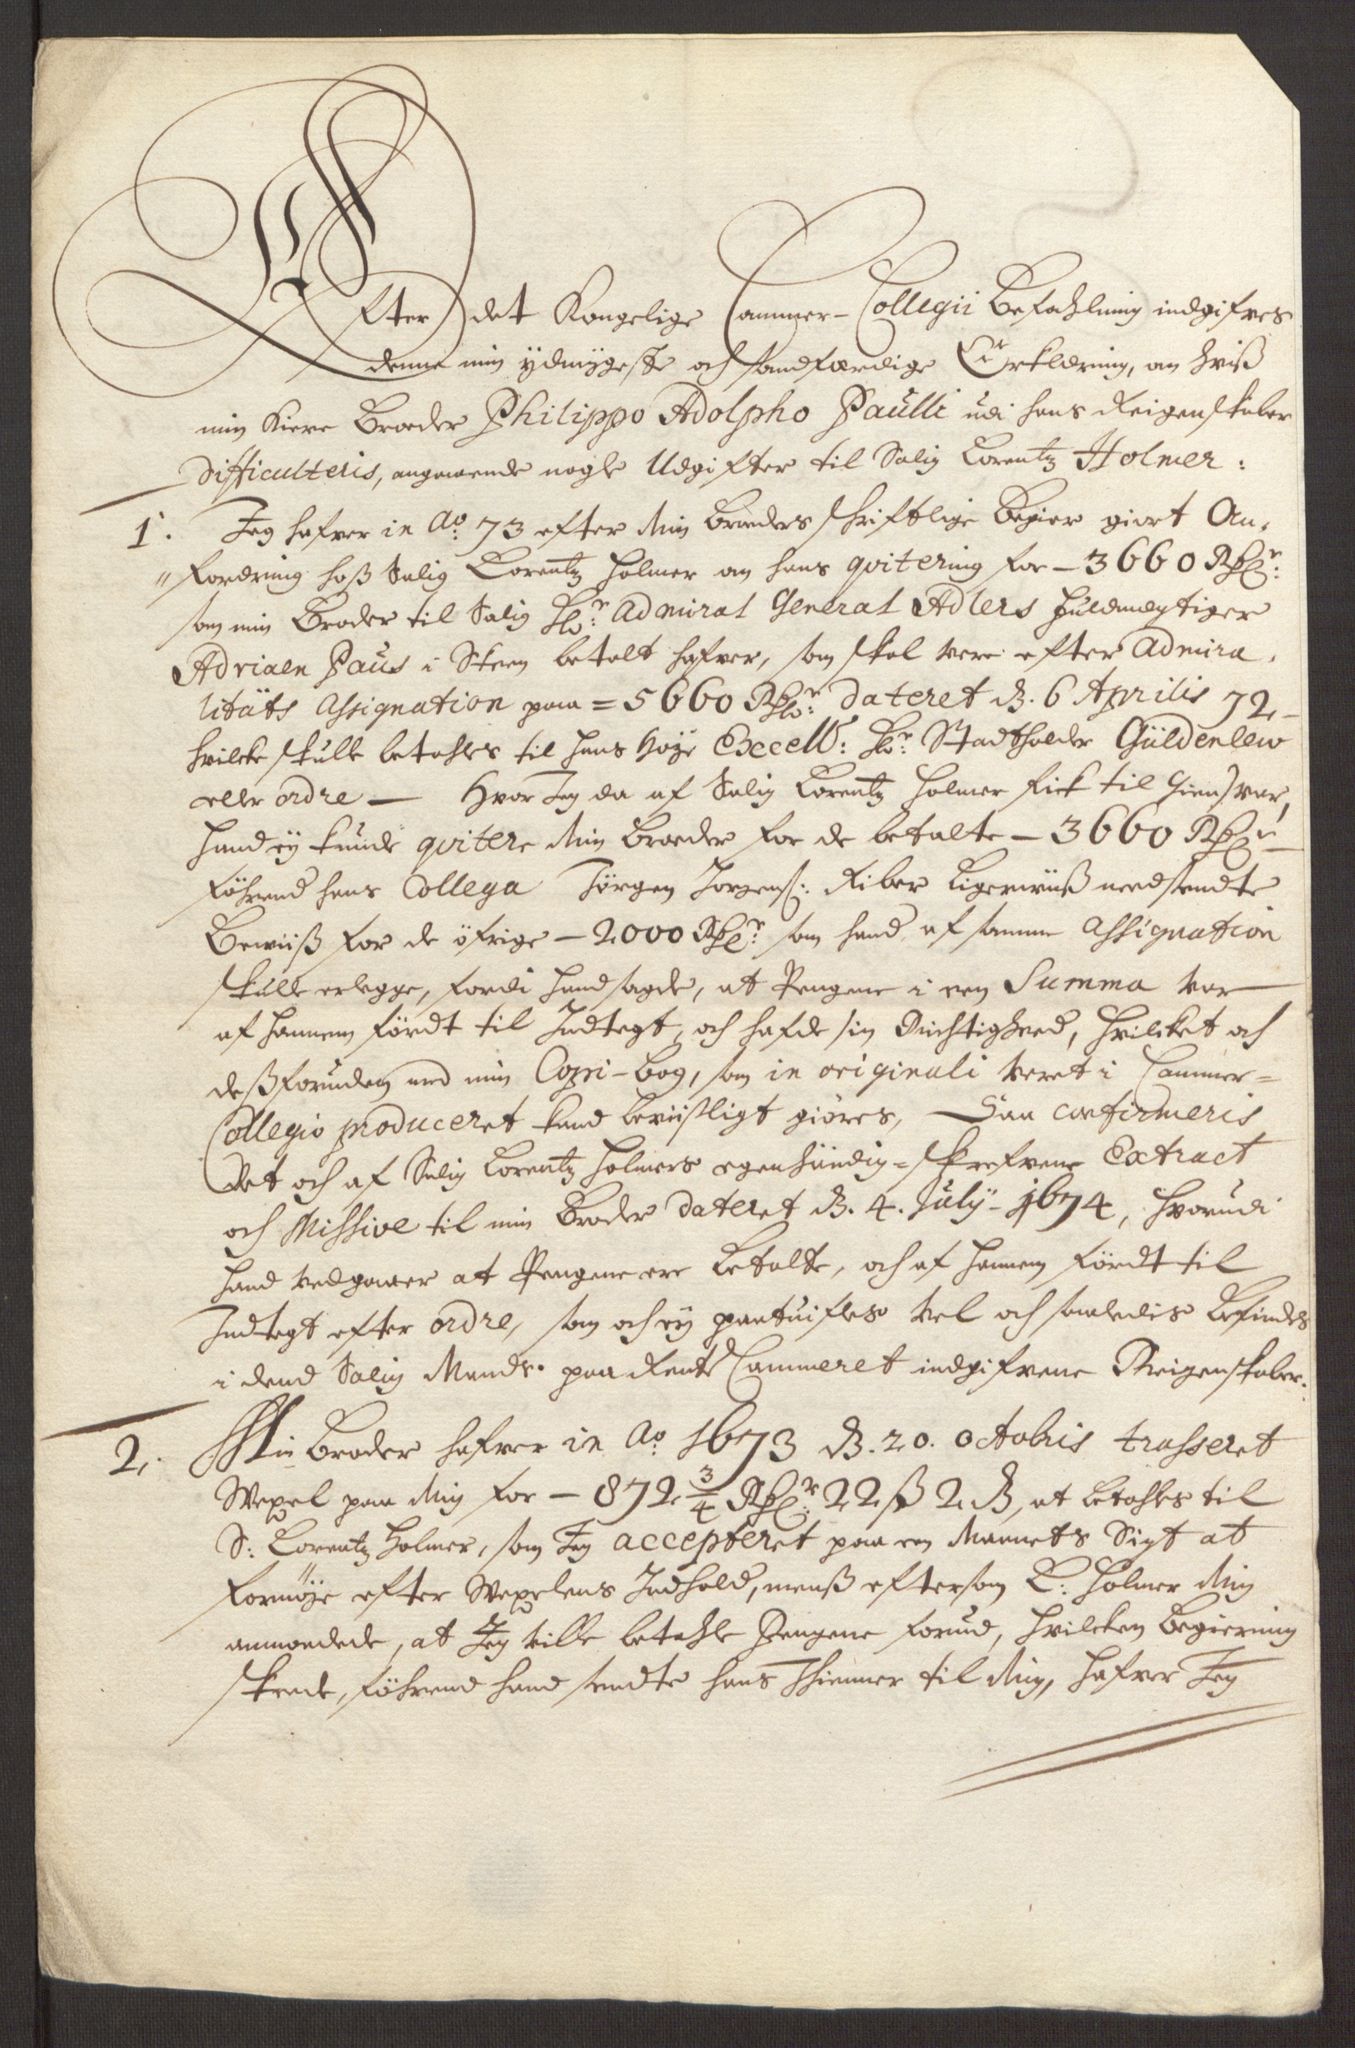 Efter det Kongelige Cammer-Collegii Befahlning indgifves
denne min ydmygeste och sandfærdige Erklæring, om hviß
min kiere Broeder Philippo Adolpho Paulli udi hans Reigenskaber
difficulteris, angaaende nogle Udgifter til Salig Lorentz Holmer:
1. Jeg hafver in Ao. 73 efter Min Broeders skriftlige Begier giort An-
"fordring hoß Salig Lorentz Holmer om hans qvitering for - 3660 Rdr:
som min Broder til Salig Hr: Admiral General Adlers Fuldmegtiger
Adriaen Paus i Skeen betalt hafver, som skal vere efter Admira-
litäts Assignation paa = 5660 Rdr: dateret d. 6 Aprilis 72 -
hvilcke skulle betahles til hans Høje Excell: Hr: Stadtholder Güldenlew
eller ordre — Hvor Jeg da af Salig Lorentz Holmer fick til Giensvar,
Hand ey kunde qvitere Min Broeder for de betalte - 3660 Rdr -
føhrend hans Collega Jørgen Jørgens: Riber ligerviiß nedsendte
Beviiß for de øfrige - 2000 Rdr: som hand af samme Assignation
skulle erlegge, fordi Hand sagde, at Pengene i een Summa var
af hannem førdt til Indtegt, och hafde sin Richtighed, hvilcket och
deßforuden med min Copi-bog, som in originali veret i Cammer=
Collegio produceret kand beviißligt giøres, Saa confirmeris
Det och af Salig Lorentz Holmers egenhændig=skrefvene Extract
och Missive til min Broder dateret d. 4. July - 1674, hvorudi
hand vedgaaer at Pengene ere betalte, och af hannem førdt til
Indtegt efter ordre, som och ey paatuifles vel och saaledis befindes
i dend Salig Mands. paa Rente Cammeret indgifvene Reigenskaber.
2. Min Broder hafver in Ao 1673 d. 20. octobris trasseret
Vexel paa Mig for - 872 3/4 Rdr: 22 ß 2 d, at betahles til
S: Lorentz Holmer, som Jeg accepteret paa en Maanets Sigt at
fornøje efter Vexelens Indhold, menß eftersom L: Holmer Mig
anmoedede, at Jeg ville betahle Pengene forud, hvilcken Begiering
skeede, føhrend hand sendte hans Thiener til Mig, hafver Jeg